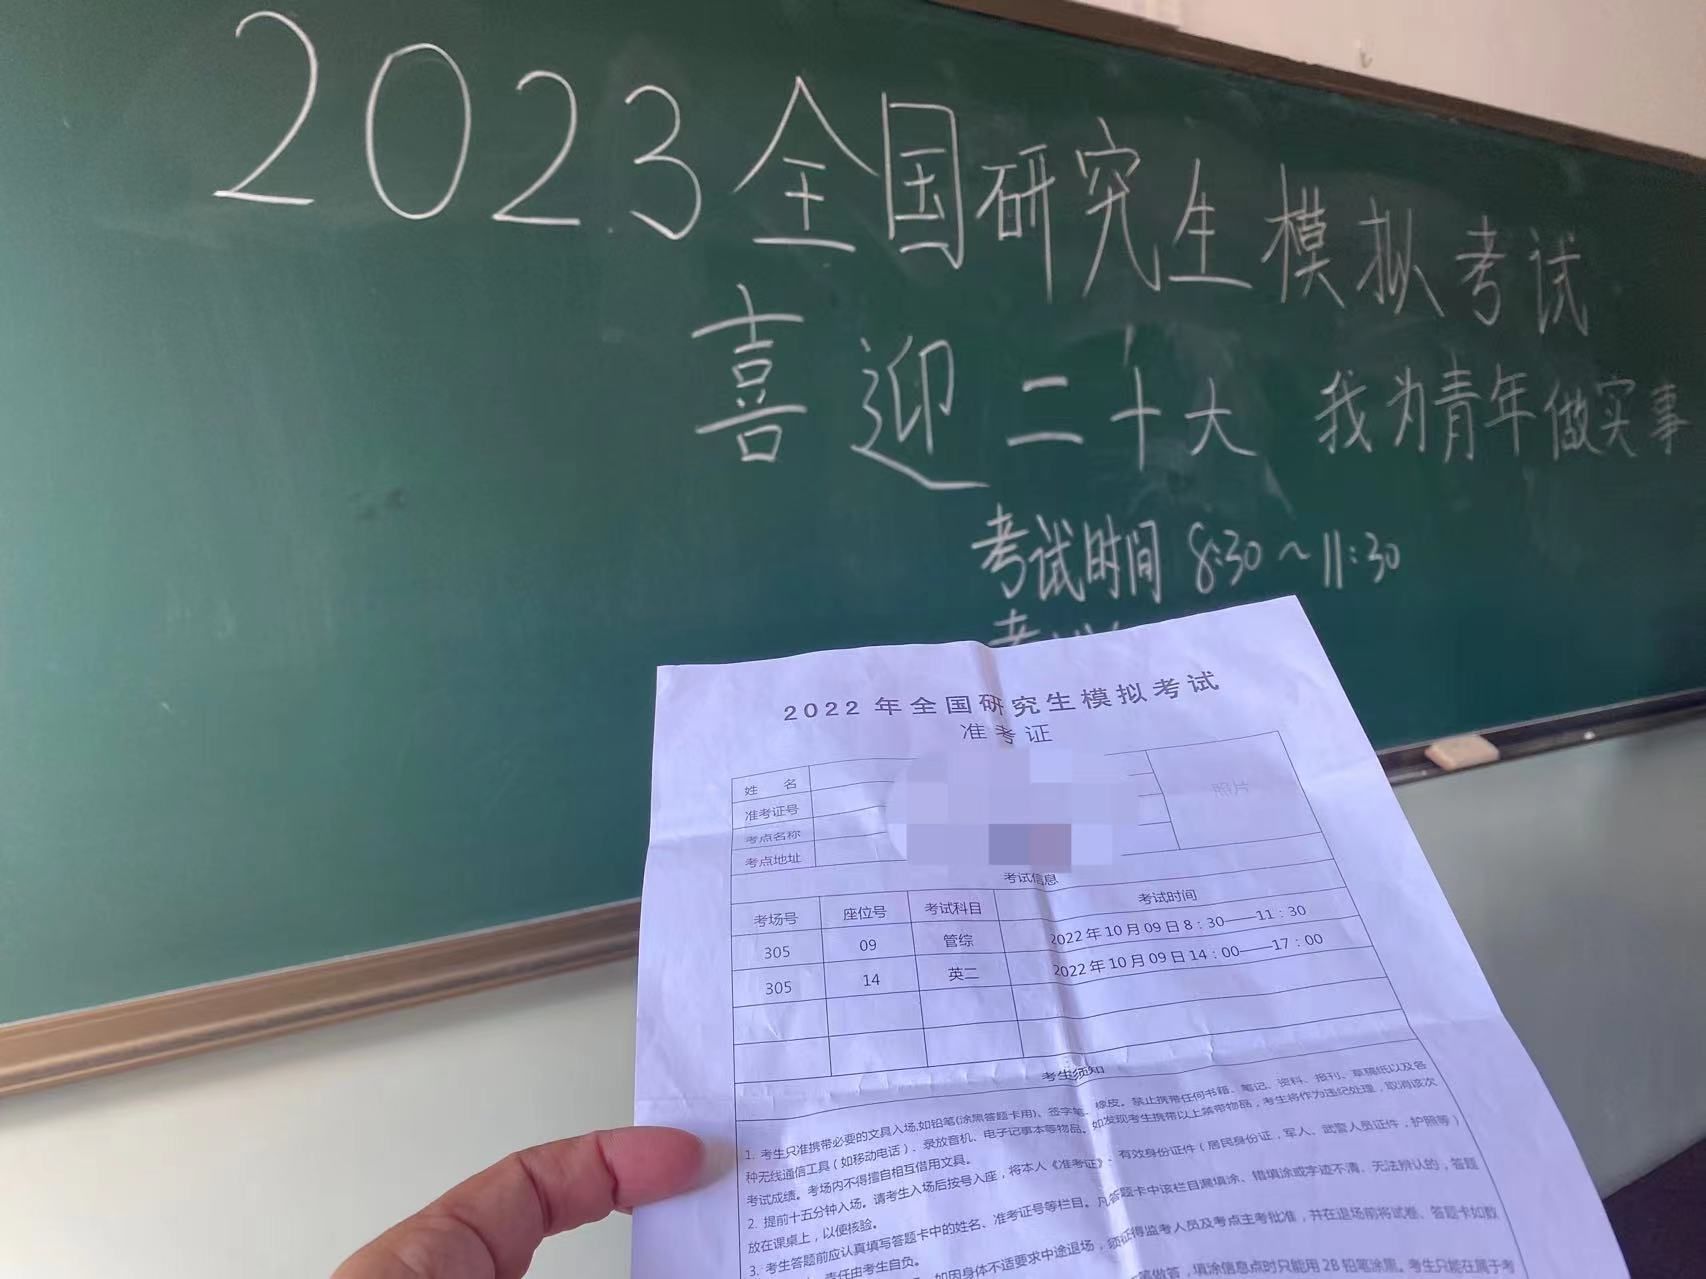 2023全国研究生模拟考试
喜迎二十大 我为青年做实事
考试时间 8:30~11:30
2022年全国研究生模拟考试
准考证
姓 名
照片
准考证号
考点名称
考点地址
考试信息
考场号 座位号 考试科目 考试时间
305 09 管综 2022年10月09日8：30——11：30
305 14 英二 2022年10月09日14：00——17：00
考生须知
1. 考生只准携带必要的文具入场,如铅笔(涂黑答题卡用)、签字笔、橡皮。禁止携带任何书籍、笔记、资料、报刊、草稿纸以及各
种无线通信工具（如移动电话）、录放音机、电子记事本等物品。如发现考生携带以上禁带物品，考生将作为违纪处理，取消该次
考试成绩。考场内不得擅自相互借用文具。
2. 提前十五分钟入场。请考生入场后按号入座，将本人《准考证》、有效身份证件（居民身份证，军人、武警人员证件，护照等）
放在课桌上，以便核验。
3. 考生答题前应认真填写答题卡中的姓名、准考证号等栏目。凡答题卡中该栏目漏填涂、错填涂或字迹不清、无法辨认的，答题
责任由考生自负。
如因身体不适要求中途退场，须征得监考人员及考点主考批准，并在退场前将试卷、答题卡如数
笔做答，填涂信息点时只能用2B铅笔涂黑。考生只能在属于考